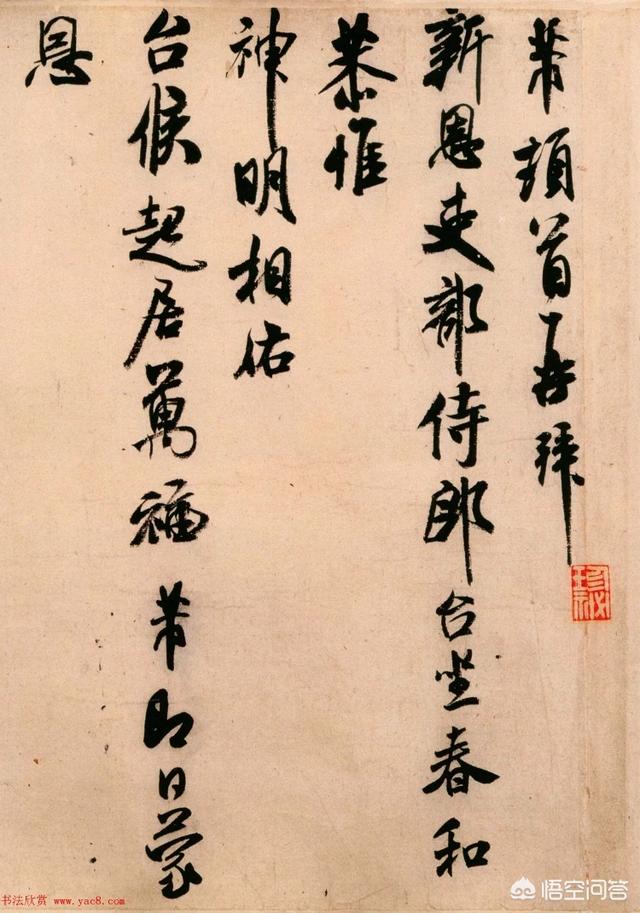 芾頓首再拜
新恩吏部侍郎台坐春和
恭惟
神明相佑
台候起居萬福芾即日蒙
恩
书法欣赏 www.yac8.com
悟空问答